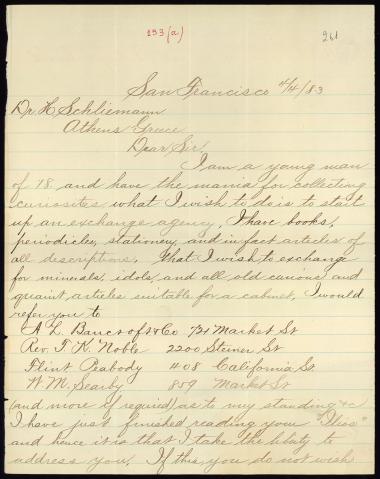 193 (a)
261
San Francisco 4/4/83
Dr H Schliemann
Athens Greece
Dear Sir
I am a young man
of 18 and have the mania for collecting
curiosites what I wish to do is to start
up an exchange agency, I have books,
periodicles, stationery, and in fact articles of
all descriptions. What I wish to exchange
for minerals, idols, and all old curious and
quaint articles suitable for a cabinet, I would
refer you to
A L Bancroft & Co 721 Market St
Rev. T. K. Noble 2200 Steiner St
Flint Peabody 408 California St
W. M. Searby 859 Market St
(and more if required) as to my standing &c
I have just finished reading your "Ilios"
and hence it is that I take the liberty to
address you. If this you do not wish